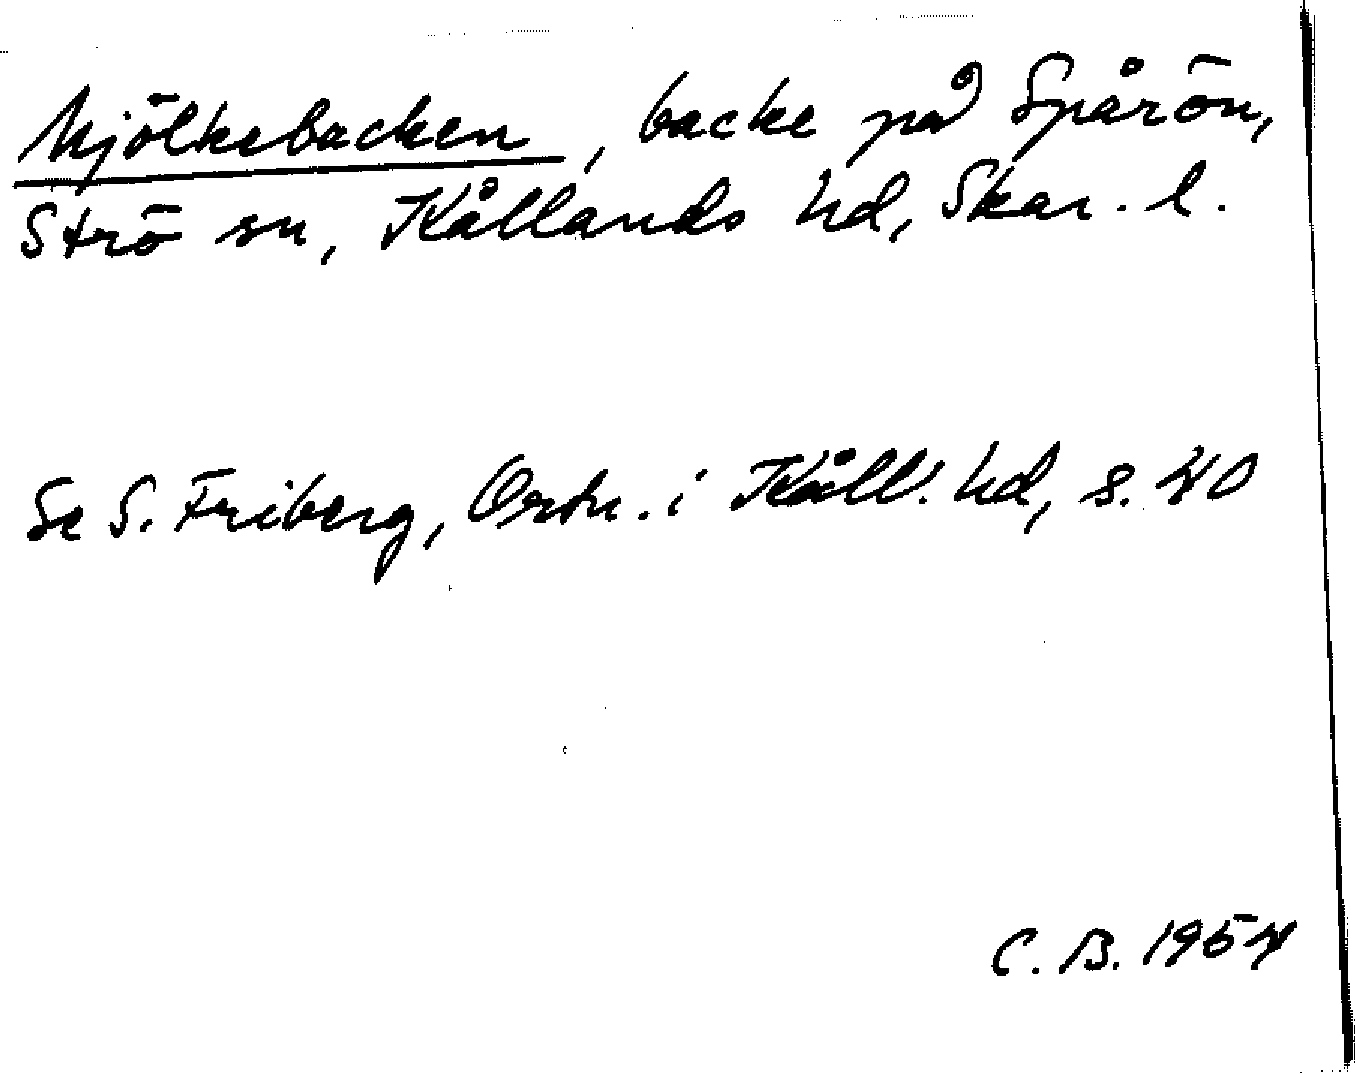 Mjölkebacken, backe på Spårön,
Strö sn, Kållands hd, Skar. l.
Se S. Friberg, Ortn. i Kåll. hd, s. 40
C. B. 1954